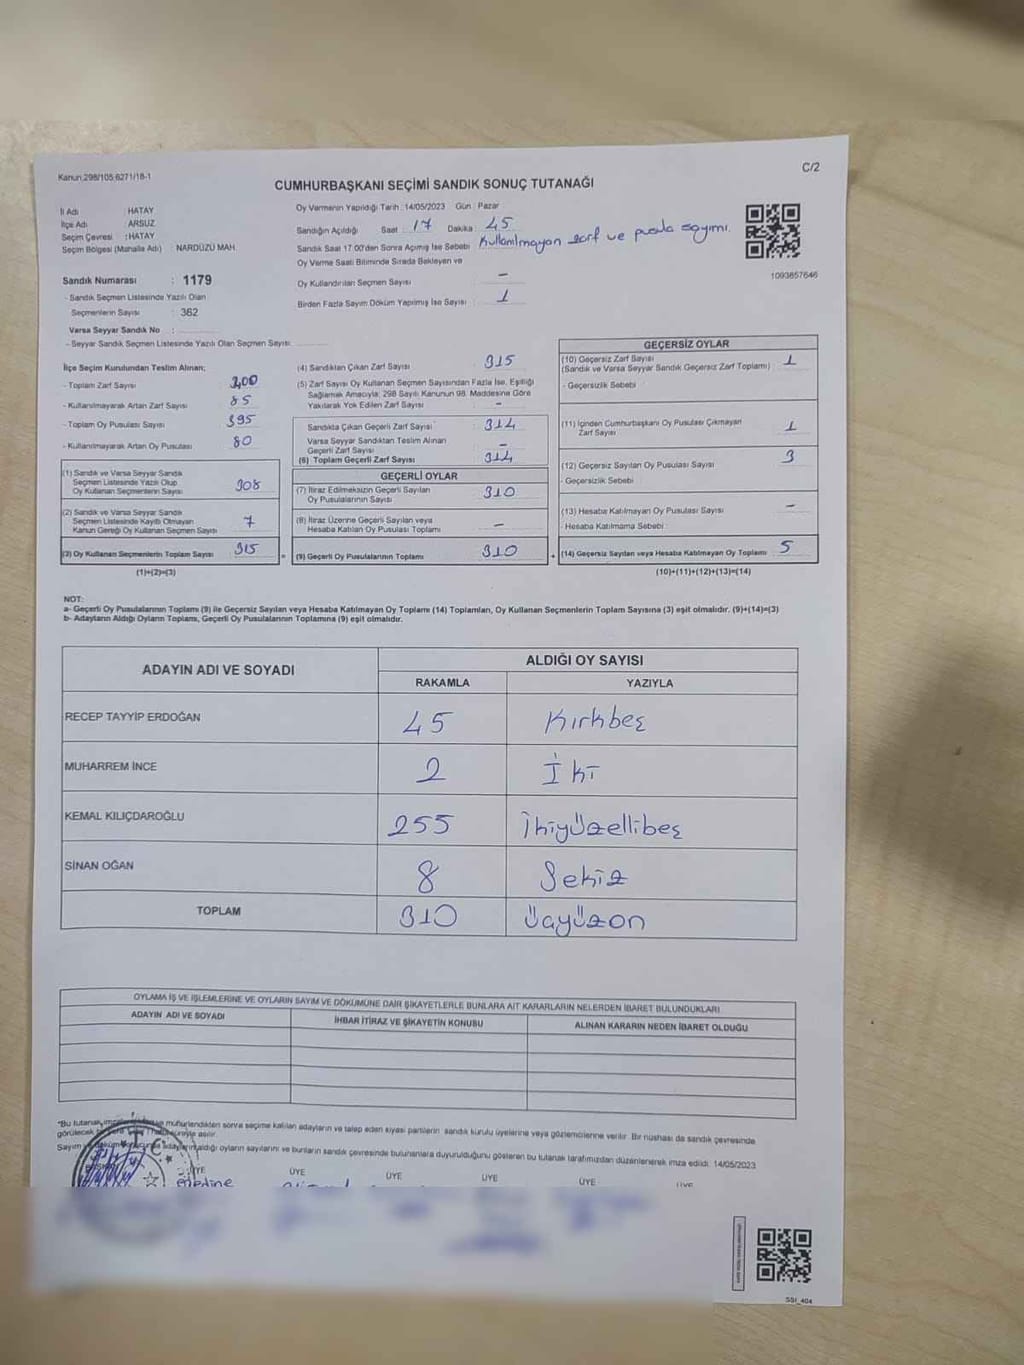 Kanun:298/105;6271/18-1
C/2
CUMHURBAŞKANI SEÇİMİ SANDIK SONUÇ TUTANAĞI
İl Adı : HATAY
İlçe Adı : ARSUZ
Seçim Çevresi : HATAY
Seçim Bölgesi (Mahalle Adı) : NARDÜZÜ MAH.
Sandık Numarası : 1179
- Sandık Seçmen Listesinde Yazılı Olan
Seçmenlerin Sayısı : 362
Varsa Seyyar Sandık No :
- Seyyar Sandık Seçmen Listesinde Yazılı Olan Seçmen Sayısı:
Oy Vermenin Yapıldığı Tarih : 14/05/2023 Gün : Pazar
Sandığın Açıldığı Saat : 17 Dakika : 45
Sandık Saat 17.00'den Sonra Açımış İse Sebebi : Kullanılmayan zarf ve pusula sayımı.
Oy Verme Saati Bitiminde Sırada Bekleyen ve
Oy Kullandırılan Seçmen Sayısı : -
Birden Fazla Sayım Döküm Yapılmış İse Sayısı : 1
1093857646
İlçe Seçim Kurulundan Teslim Alınan;
- Toplam Zarf Sayısı
- Kullanılmayarak Artan Zarf Sayısı : 85
- Toplam Oy Pusulası Sayısı : 395
- Kullanılmayarak Artan Oy Pusulası : 80
(1) Sandık ve Varsa Seyyar Sandık
Seçmen Listesinde Yazılı Olup
Oy Kullanan Seçmenlerin Sayısı 308
(2) Sandık ve Varsa Seyyar Sandık
Seçmen Listesinde Kayıtlı Olmayan
Kanun Gereği Oy Kullanan Seçmen Sayısı 7
(3) Oy Kullanan Seçmenlerin Toplam Sayısı 315
(1)+(2)=(3)
(4) Sandıktan Çıkan Zarf Sayısı : 315
(5) Zarf Sayısı Oy Kullanan Seçmen Sayısından Fazla İse, Eşitliği
Sağlamak Amacıyla; 298 Sayılı Kanunun 98. Maddesine Göre
Yakılarak Yok Edilen Zarf Sayısı : -
Sandıkta Çıkan Geçerli Zarf Sayısı : 314
Varsa Seyyar Sandıktan Teslim Alınan
Geçerli Zarf Sayısı : -
(6) Toplam Geçerli Zarf Sayısı : 314
GEÇERLİ OYLAR
(7) İtiraz Edilmeksizin Geçerli Sayılan
Oy Pusulalarının Sayısı : 310
(8) İtiraz Üzerine Geçerli Sayılan veya
Hesaba Katılan Oy Pusulası Toplamı : -
(9) Geçerli Oy Pusulalarının Toplamı : 310
GEÇERSİZ OYLAR
(10) Geçersiz Zarf Sayısı
(Sandık ve Varsa Seyyar Sandık Geçersiz Zarf Toplamı) : 1
- Geçersizlik Sebebi :
(11) İçinden Cumhurbaşkanı Oy Pusulası Çıkmayan
Zarf Sayısı : 1
(12) Geçersiz Sayılan Oy Pusulası Sayısı : 3
- Geçersizlik Sebebi :
(13) Hesaba Katılmayan Oy Pusulası Sayısı : -
- Hesaba Katılmama Sebebi :
(14) Geçersiz Sayılan veya Hesaba Katılmayan Oy Toplamı : 5
(10)+(11)+(12)+(13)=(14)
NOT:
a- Geçerli Oy Pusulalarının Toplamı (9) ile Geçersiz Sayılan veya Hesaba Katılmayan Oy Toplamı (14) Toplamları, Oy Kullanan Seçmenlerin Toplam Sayısına (3) eşit olmalıdır. (9)+(14)=(3)
b- Adayların Aldığı Oyların Toplamı, Geçerli Oy Pusulalarının Toplamına (9) eşit olmalıdır.
ADAYIN ADI VE SOYADI
ALDIĞI OY SAYISI
RAKAMLA YAZIYLA
RECEP TAYYİP ERDOĞAN 45 Kırkbeş
MUHARREM İNCE 2 İki
KEMAL KILIÇDAROĞLU 255 İkiyüzellibeş
SİNAN OĞAN 8 Sekiz
TOPLAM 310 Üçyüzon
OYLAMA İŞ VE İŞLEMLERİNE VE OYLARIN SAYIM VE DÖKÜMÜNE DAİR ŞİKAYETLERLE BUNLARA AİT KARARLARIN NELERDEN İBARET BULUNDUKLARI
ADAYIN ADI VE SOYADI İHBAR İTİRAZ VE ŞİKAYETİN KONUSU ALINAN KARARIN NEDEN İBARET OLDUĞU
*Bu tutanak, mühürlendikten sonra seçime katılan adayların ve talep eden siyasi partilerin sandık kurulu üyelerine veya gözlemcilerine verilir. Bir nüshası da sandık çevresinde
görülecek asılır.
Sayım aldığı oyların sayılarını ve bunların sandık çevresinde bulunanlara duyurulduğunu gösteren bu tutanak tarafımızdan düzenlenerek imza edildi. 14/05/2023
ÜYE ÜYE ÜYE ÜYE ÜYE ÜYE
Medine
SSI_404